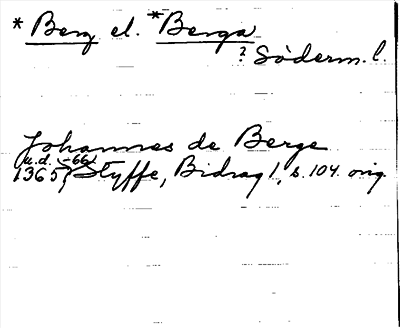 * Berg el. *Berga
? Söderm. l.
Johannes de Berge
u.d. (-66)
1365, Styffe, Bidrag 1, s. 104. orig.